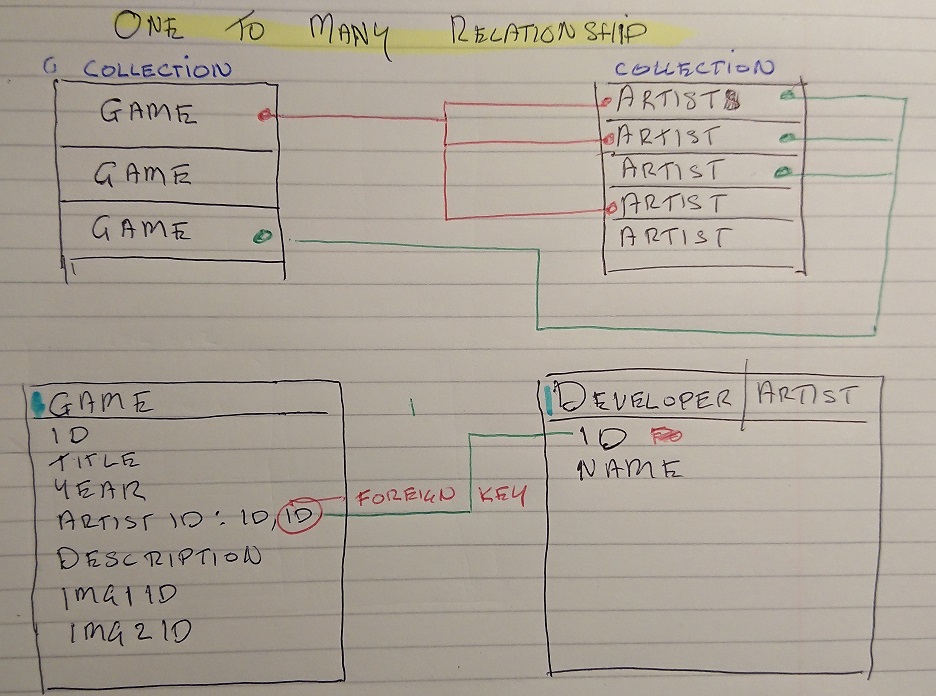 ONE TO MANY RELATIONSHIP
COLLECTION
GAME
GAME
GAME
COLLECTION
ARTIST
ARTIST
ARTIST
ARTIST
ARTIST
GAME
ID
TITLE
YEAR
ARTIST ID : ID, ID
DESCRIPTION
IMG1 ID
IMG2 ID
FOREIGN KEY
DEVELOPER ARTIST
ID
NAME